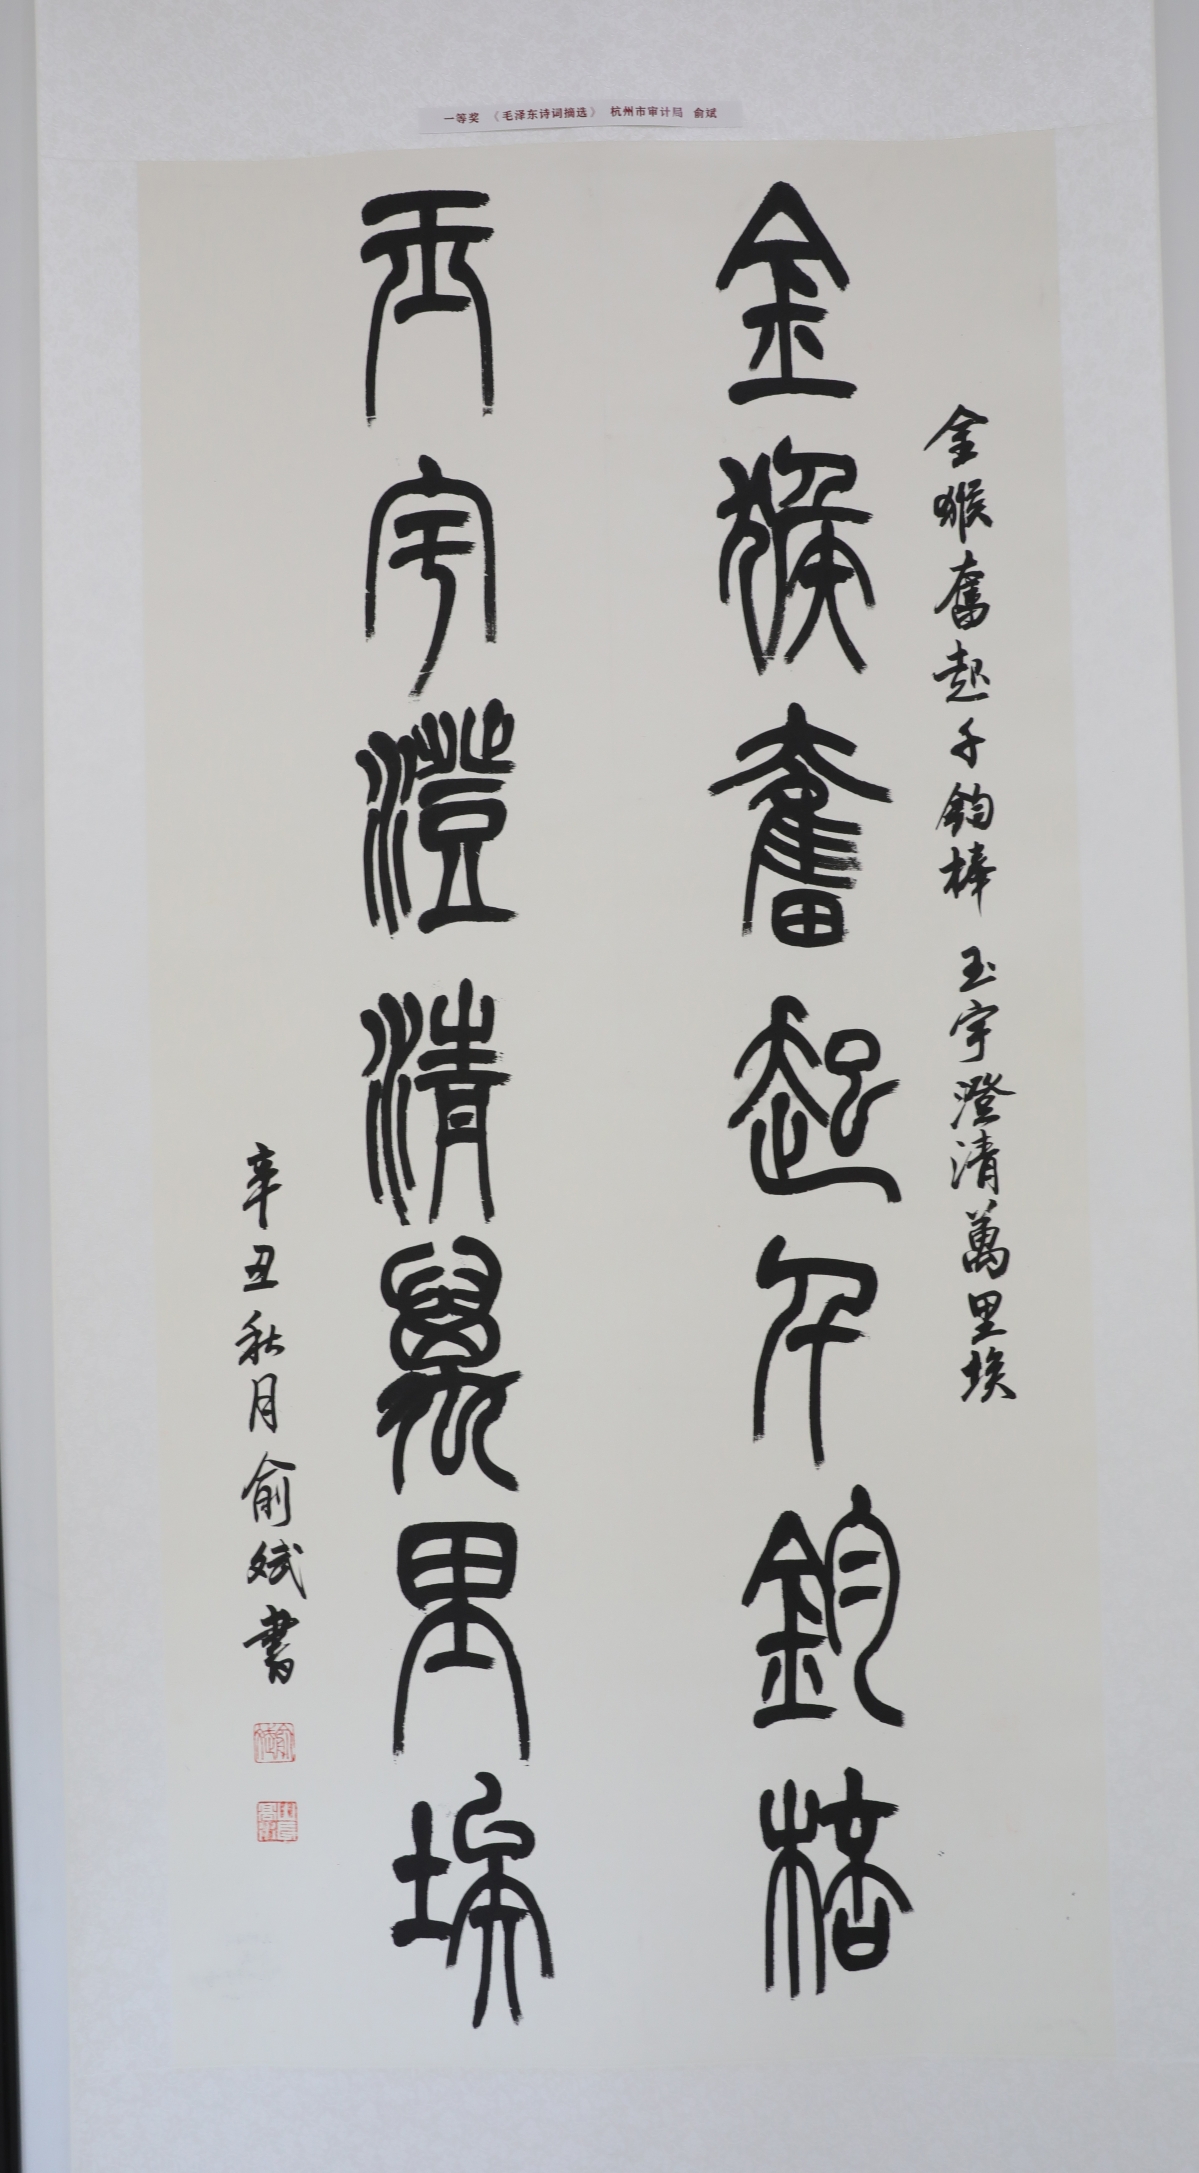 一等奖 《毛泽东诗词摘选》 杭州市审计局 俞斌
金猴奮起千鈞棒 玉宇澄清萬里埃
金猴奮起千鈞棓
玉宇澄清萬里埃
辛丑秋月俞斌書